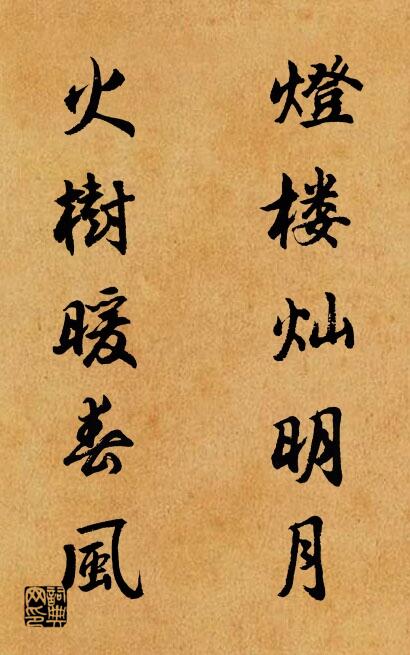 燈楼灿明月
火樹暖春風
詞典网印